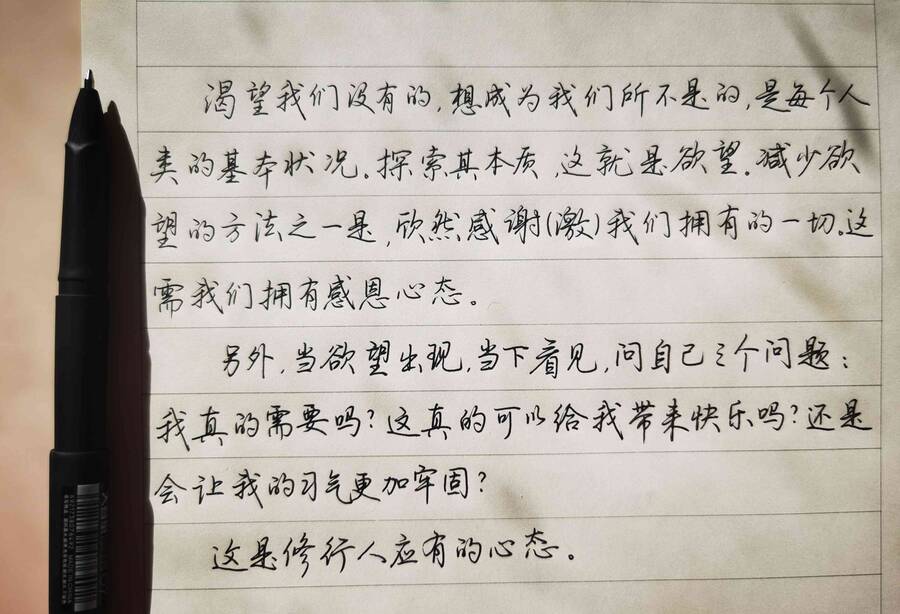 渴望我们没有的,想成为我们所不是的,是每个人
类的基本状况。探索其本质,这就是欲望。减少欲
望的方法之一是,欣然感谢(激)我们拥有的一切。这
需我们拥有感恩心态。
另外,当欲望出现,当下看见,问自己三个问题:
我真的需要吗?这真的可以给我带来快乐吗?还是
会让我的习气更加牢固?
这是修行人应有的心态。